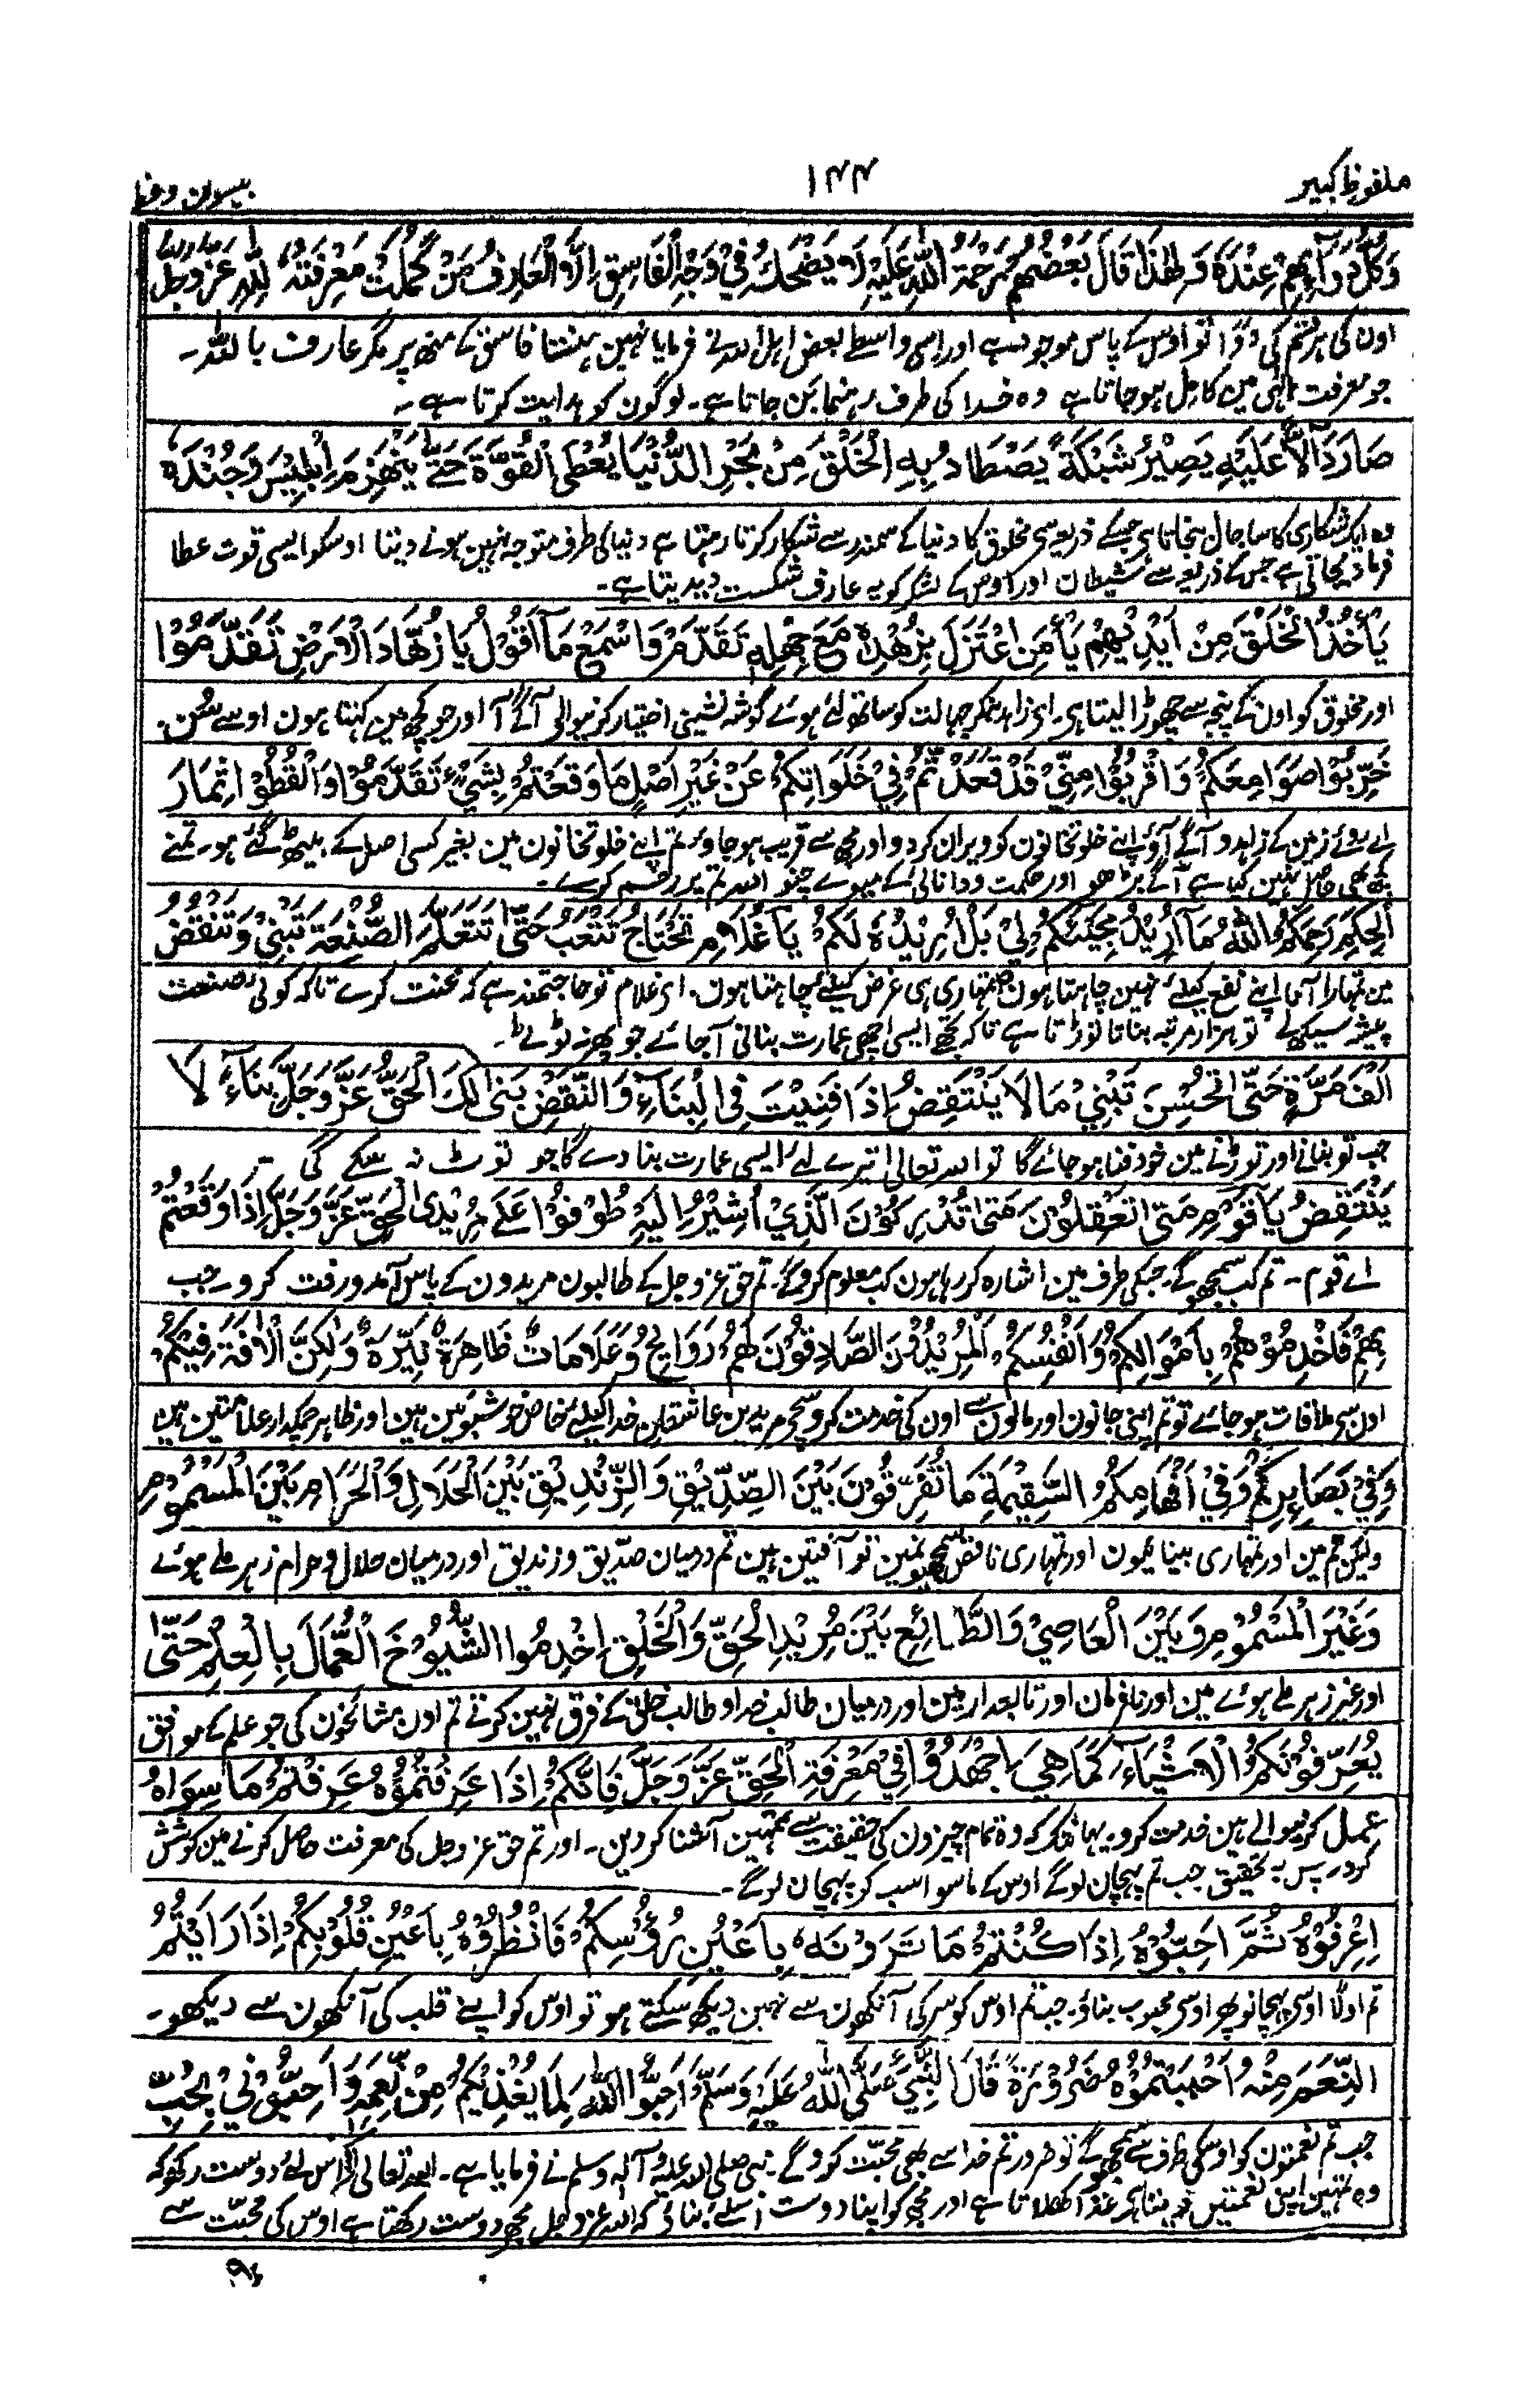 ملفوظ کبیر ۱۴۴
وَكُلُّ دَوَآئِهِمْ عِنْدَهٗ وَلِهٰذَا قَالَ بَعْضُهُمْ رَحْمَةُ اللّٰهِ عَلَيْهِ لَا يَضْحَكُ فِيْ وَجْهِ الْفَاسِقِ اِلَّا الْعَارِفُ مَنْ كَمُلَتْ مَعْرِفَتُهٗ لِلّٰهِ عَزَّ وَجَلَّ
اون کی ہر قسم کی دوا تو اوس کے پاس موجود ہے اور اسی واسطے بعض اہل اللہ نے فرمایا نہین ہنستا فاسق کے منھ پر مگر عارف باللہ۔
جو معرفت الٰہی مین کامل ہو جاتا ہے وہ خدا کی طرف رہنما بن جاتا ہے۔ لوگون کو ہدایت کرتا ہے۔
صَارَ دَآلًّا عَلَيْهِ يَصِيْرُ شَبَكَةً يَصْطَادُ بِهِ الْخَلْقَ مِنْ بَحْرِ الدُّنْيَا يُعْطَى الْقُوَّةَ حَتّٰى يَنْهَزِمَ اِبْلِيْسَ وَجُنْدَهٗ
وہ ایک شکاری کا سا جال بنجاتا ہی جسکے ذریعہ سی مخلوق کا دنیا کے سمندر سے شکار کرتا رہتا ہے دنیا کی طرف متوجہ نہین ہونے دیتا اوسکو ایسی قوت عطا
فرما دیجاتی ہے جس کے ذریعہ سے شیطان اور اوس کے لشکر کو یہ عارف شکست دیدیتا ہے۔
يَاْخُذُ الْخَلْقَ مِنْ اَيْدِيْهِمْ يَا مَنِ اعْتَزَلَ بِزُهْدِهٖ مَعَ جَهْلِهٖ تَقَدَّمْ وَاسْمَعْ مَا اَقُوْلُ يَا زُهَّادَ الْاَرْضِ تَقَدَّمُوْا
اور مخلوق کو اون کے پنجہ سے چھوڑا لیتا ہی۔ ای زاہد بنکر جہالت کو ساتھ لئے ہوئے گوشہ نشینی اختیار کرنیوالی آگے آ اور جو کچھ مین کہتا ہون اوسے سُن۔
خَرِّبُوْا صَوَامِعَكُمْ وَاقْرُبُوْا مِنِّيْ قَدْ قَعَدْتُّمْ فِيْ خَلَوَاتِكُمْ عَنْ غَيْرِ اَصْلٍ مَا وَقَعْتُمْ بِشَيْءٍ تَقَدَّمُوْا وَالْقُطُوْا ثِمَارَ
اے روئے زمین کے زاہدو آگے آؤ اپنے خلوتخانون کو ویران کردو اور مجھ سے قریب ہو جاؤ تم اپنے خلوتخانون مین بغیر کسی اصل کے بیٹھ گئے ہو۔ تمنے
کچھ بھی حاصل نہین کیا ہے آگے بڑھو اور حکمت و دانائی کے میوے چنو اللہ تم پر رحم کرے۔
الْحِكَمِ رَحِمَكُمُ اللّٰهُ مَا اُرِيْدُ مَجِيْئَكُمْ لِيْ بَلْ اُرِيْدُهٗ لَكُمْ يَا غُلَامُ تَحْتَاجُ تَتْعَبُ حَتّٰى تَتَعَلَّمَ الصَّنْعَةَ تَبْنِيْ وَتَنْقُضُ
مین تمہارا آنا اپنے نفع کیلئے نہین چاہتا ہون تمہاری ہی غرض کیلئے چاہتا ہون۔ ای غلام تو حاجتمند ہے کہ محنت کرے تاکہ کوئی صنعت
پیشہ سیکھ لے تو ہزار مرتبہ بناتا توڑتا ہے تاکہ تجھے ایسی اچھی عمارت بنانی آجائے جو پھر نہ ٹوٹے۔
اَلْفَ مَرَّةٍ حَتّٰى تُحْسِنَ تَبْنِيْ مَا لَا يَنْتَقِضُ اِذَا فَنِيْتَ فِي الْبِنَآءِ وَالنَّقْضِ بَنٰى لَكَ الْحَقُّ عَزَّ وَجَلَّ بِنَآءً لَا
جب تو بنانے اور توڑنے مین خود فنا ہو جائے گا تو اللہ تعالی تیرے لئے ایسی عمارت بنا دے گا جو ٹوٹ نہ سکے گی۔
يَنْتَقِضُ يَا قَوْمِ مَتٰى تَعْقِلُوْنَ مَتٰى تُدْرِكُوْنَ الَّذِيْ اُشِيْرُ اِلَيْهِ طُوْفُوْا عَلٰى مُرِيْدِى الْحَقِّ عَزَّ وَجَلَّ اِذَا وَقَعْتُمْ
اے قوم۔ تم کب سمجھوگے۔ جسکی طرف مین اشارہ کر رہا ہون کب معلوم کروگے۔ تم حق عز و جل کے طالبون مریدون کے پاس آمد و رفت کرو۔ جب
بِهِمْ فَاخْدِمُوْهُمْ بِاَمْوَالِكُمْ وَاَنْفُسِكُمْ الْمُرِيْدُوْنَ الصَّادِقُوْنَ لَهُمْ رَوَايِحُ وَعَلَامَاتٌ ظَاهِرَةٌ نَيِّرَةٌ وَلٰكِنَّ الْاٰفَةَ فِيْكُمْ
اون سے ملاقات ہو جائے تو تم اپنی جانون اور مالون سے اون کی خدمت کرو سچے مریدین عاشقان خدا کیلئے خاص خوشبوئین ہین اور ظاہر چمکدار علامتین ہین
وَفِيْ بَصَائِرِكُمْ وَفِيْ اَفْهَامِكُمُ السَّقِيْمَةِ مَا تُفَرِّقُوْنَ بَيْنَ الصِّدِّيْقِ وَالزِّنْدِيْقِ بَيْنَ الْحَلَالِ وَالْحَرَامِ بَيْنَ الْمَسْمُوْمِ
ولیکن تم مین اور تمہاری بینائیون اور تمہاری ناقص سمجھون مین تو آفتین ہین تم درمیان صدّیق و زندیق اور درمیان حلال و حرام زہر ملے ہوئے
وَغَيْرَ الْمَسْمُوْمِ وَبَيْنَ الْعَاصِيْ وَالطَّائِعِ بَيْنَ مُرِيْدِ الْحَقِّ وَالْخَلْقِ اِخْدِمُوا الشُّيُوْخَ الْعُمَّالَ بِالْعِلْمِ حَتّٰى
اور غیر زہر ملے ہوئے مین اور نافرمان اور تابعدار مین اور درمیان طالب خدا و طالب خلق کے فرق نہین کرتے تم اون مشائخون کی جو علم کے موافق
يُعَرِّفُوْنَكُمُ الْاَشْيَآءَ كَمَا هِيَ اِجْهَدُوْا فِيْ مَعْرِفَةِ الْحَقِّ عَزَّ وَجَلَّ فَاِنَّكُمْ اِذَا عَرَفْتُمُوْهُ عَرَفْتُمْ مَا سِوَاهُ
عمل کرنیوالے ہین خدمت کرو۔ یہانتک کہ وہ تمام چیزون کی حقیقت سے تمہین آشنا کر دین۔ اور تم حق عز و جل کی معرفت حاصل کرنے مین کوشش
کرو۔ پس بہ تحقیق جب تم پہچان لوگے اوس کے ماسوا سب کو پہچان لوگے۔
اِعْرِفُوْهُ ثُمَّ اَحِبُّوْهُ اِذَا كُنْتُمْ مَا تَرَوْنَهٗ بِاَعْيُنِ رُؤُسِكُمْ فَانْظُرُوْهُ بِاَعْيُنِ قُلُوْبِكُمْ اِذَا رَاَيْتُمُ
تم اولًا اوسی پہچانو پھر اوسی محبوب بناؤ۔ جب تم اوس کو سر کی آنکھون سے نہین دیکھ سکتے ہو تو اوس کو اپنے قلب کی آنکھون سے دیکھو۔
النِّعَمَ مِنْهُ اَحْبَبْتُمُوْهُ ضَرُوْرَةً قَالَ النَّبِيُّ صَلَّى اللّٰهُ عَلَيْهِ وَسَلَّمَ اَحِبُّوا اللّٰهَ لِمَا يَغْذِيْكُمْ مِنْ نِّعَمِهٖ وَاَحِبُّوْنِيْ لِحُبِّ
جب تم نعمتون کو اوسکی طرف سے سمجھوگے تو ضرور تم خدا سے بھی محبّت کروگے۔ نبی صلی اللہ علیہ وآلہ وسلم نے فرمایا ہے۔ اللہ تعالی کو اس لئے دوست رکھو کہ
وہ تمہین اپنی نعمتین دیتا ہے غذا کھلاتا ہے اور مجھ کو اپنا دوست اسلئے بناؤ کہ اللہ عز و جل مجھے دوست رکھتا ہے اوس کی محبّت سے